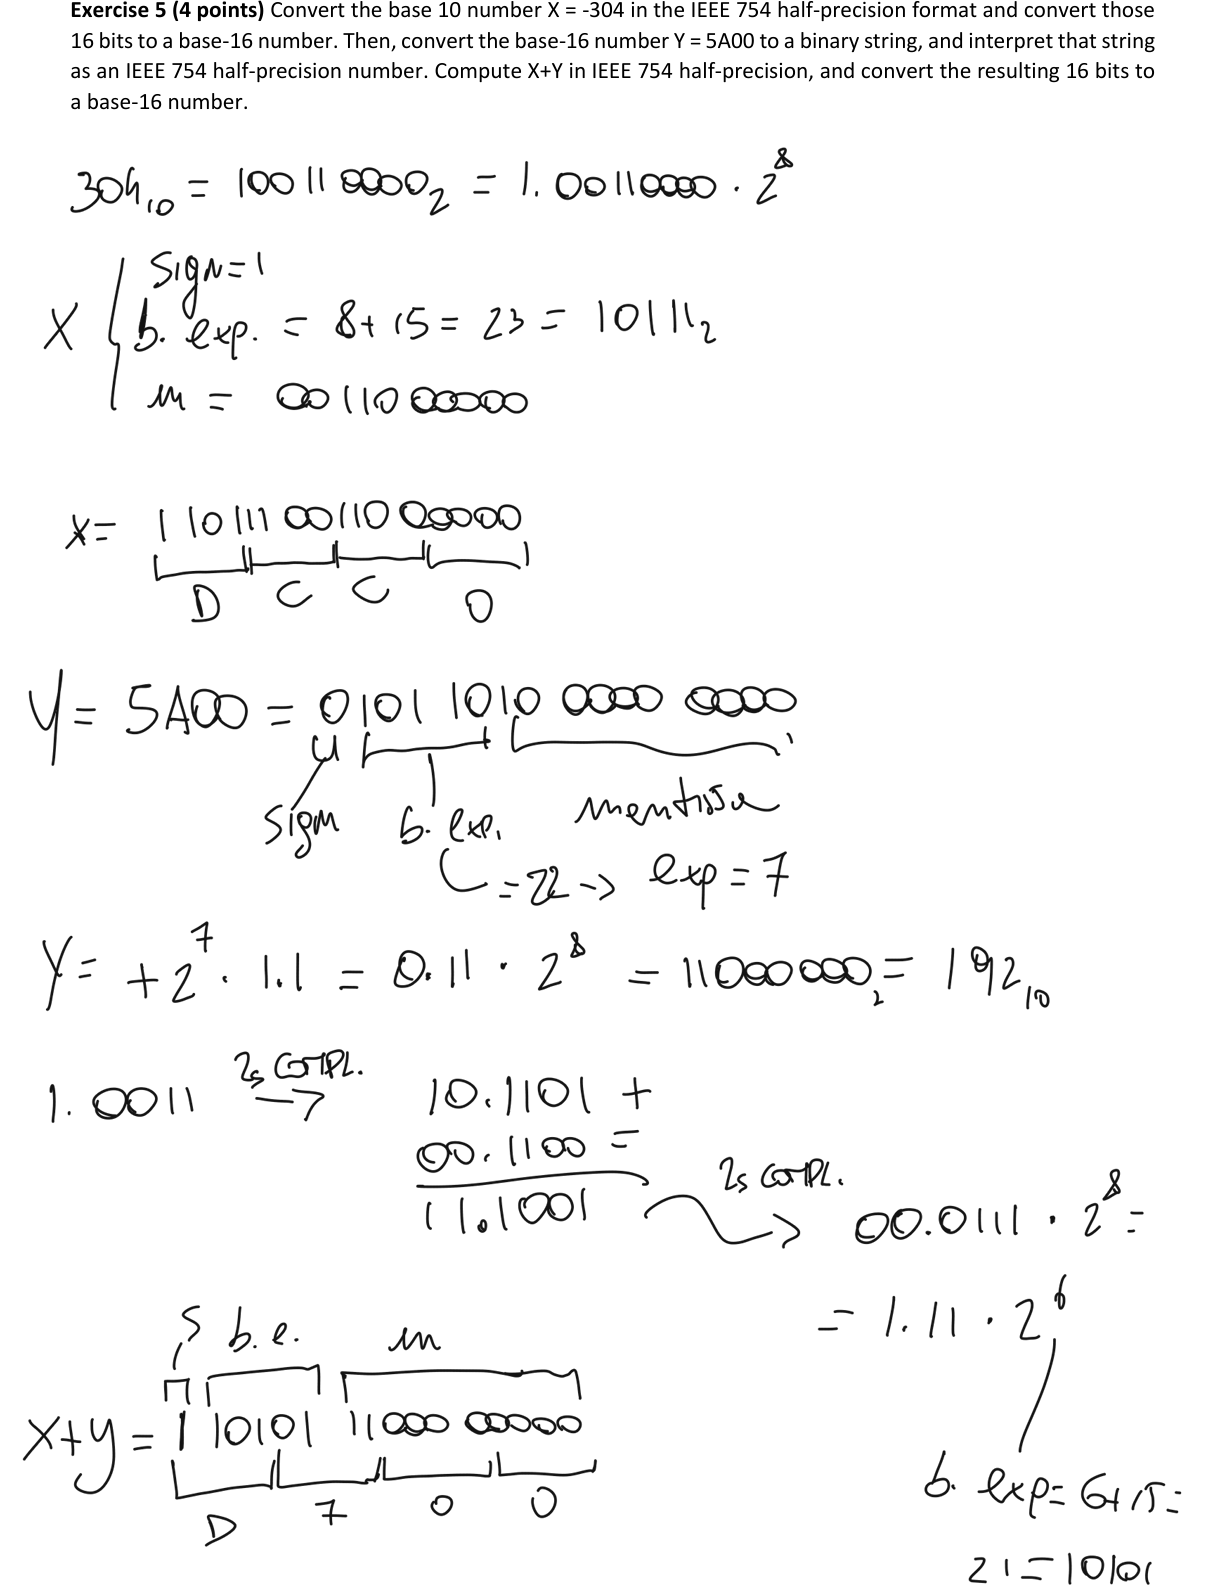 Exercise 5 (4 points) Convert the base 10 number X = -304 in the IEEE 754 half-precision format and convert those
16 bits to a base-16 number. Then, convert the base-16 number Y = 5A00 to a binary string, and interpret that string
as an IEEE 754 half-precision number. Compute X+Y in IEEE 754 half-precision, and convert the resulting 16 bits to
a base-16 number.
304₁₀ = 100110000₂ = 1.00110000 · 2⁸
X { Sign=1
b. exp. = 8+15 = 23 = 10111₂
m = 0011000000
X= 1 10111 0011000000
D C C 0
Y = 5A00 = 0101 1010 0000 0000
sign b. exp. mentissa
=22 -> exp = 7
Y= +2⁷ · 1.1 = 0.11 · 2⁸ = 11000000₂ = 192₁₀
1.0011 2s COMPL. → 10.1101 +
00.1100 =
11.1001 2s COMPL. → 00.0111 · 2⁸ =
= 1.11 · 2⁶
S b.e. m
X+Y = 1 10101 11000 00000
D 7 0 0
b. exp= 6+15=
21=10101